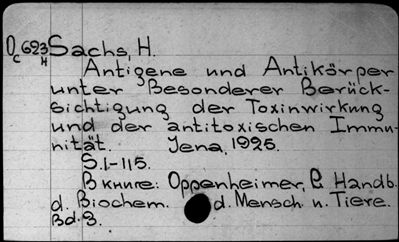 Oc 693 H Sachs, H.
Antigene und Antikörper
unter Besonderer Berück-
sichtigung der Toxinwirkung
und der antitoxischen Immu-
nität. Jena, 1925.
S. 1-115.
В книге: Oppenheimer, C. Handb.
d. Biochem. d. Mensch. u. Tiere.
Bd. 3.